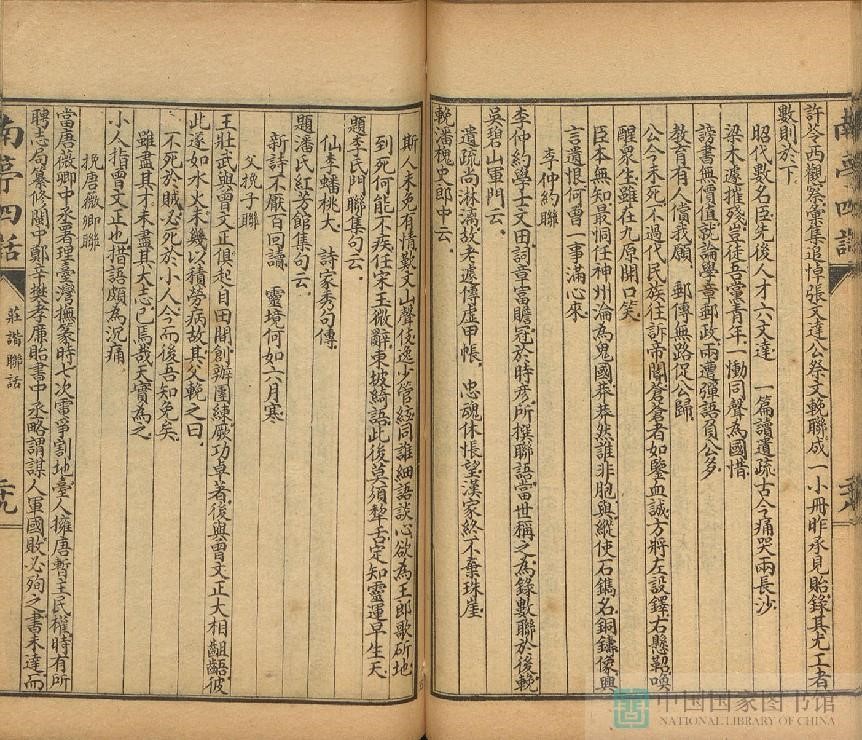 許苓西觀察彙集追悼張文達公祭文輓聯成一小冊昨承見貽錄其尤工者
數則於下
昭代數名臣先後人才六文達 一篇讀遺疏古今痛哭兩長沙
梁木遽摧殘豈徒吾黨青年一慟同聲為國惜
謗書無價值就論學章郵政兩遭彈語負公多
教育有人償我願 郵傳無路促公歸
公今未死不過代民族往訴帝閽蒼蒼者如鑒血誠方將左設鐸右懸鞀喚
醒衆生雖在九原開口笑
臣本無知最恫任神州淪為鬼國莽莽然誰非胞與縱使石鐫名銅鏽像興
言遺恨何曾一事滿心來
李仲約聯
李仲約學士文田詞章富贍冠於時彥所撰聯語當世稱之為錄數聯於後輓
吳碧山軍門云
遺疏尚淋漓故老遽傳虛甲帳 忠魂休悵望漢家終不棄珠崖
輓潘槐史郎中云
南亭四話
二八
斯人未免有情數文山聲伎逸少管絃同誰細語談心欲為王郎歌斫地
到死何能不疾任宋玉微辭東坡綺語此後莫須犁舌定知靈運早生天
題李氏門聯集句云
仙李蟠桃大 詩家秀句傳
題潘氏紅芳館集句云
新詩不厭百回讀 靈境何如六月寒
父挽子聯
王壯武與曾文正俱起自田閒創辦團練厥功卓著後與曾文正大相齟齬彼
此遂如水火未幾以積勞病故其父輓之曰
不死於賊必死於小人今而後吾知免矣
雖盡其才未盡其大志已焉哉天實為之
小人指曾文正也措語頗為沉痛
挽唐薇卿聯
當唐薇卿中丞署理臺灣撫篆時七次電爭割地臺人擁唐暫主民權時有所
聘志局纂修閩中鄭辛樊孝廉貽書中丞略謂謀人軍國敗必殉之書未達而
南亭四話
莊諧聯話
二九
中国国家图书馆
NATIONAL LIBRARY OF CHINA